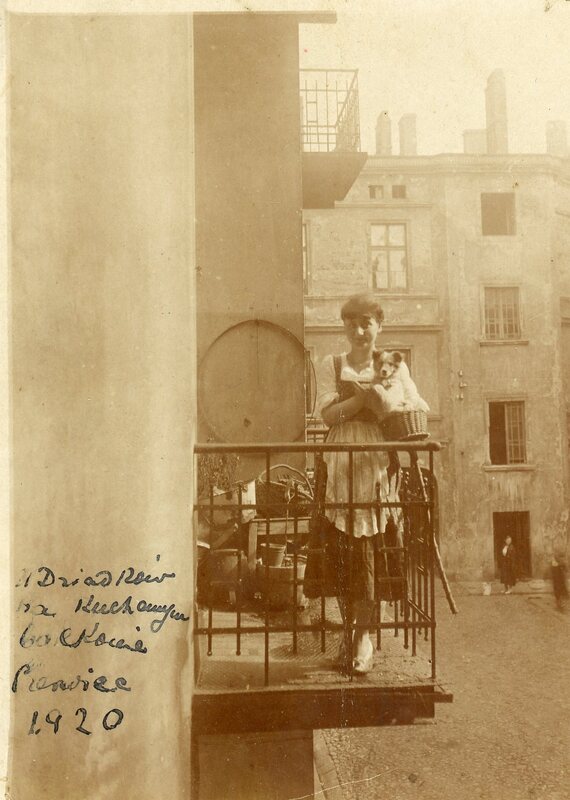 U Dziadków
na Kuchennym
balkonie
Czerwiec
1920